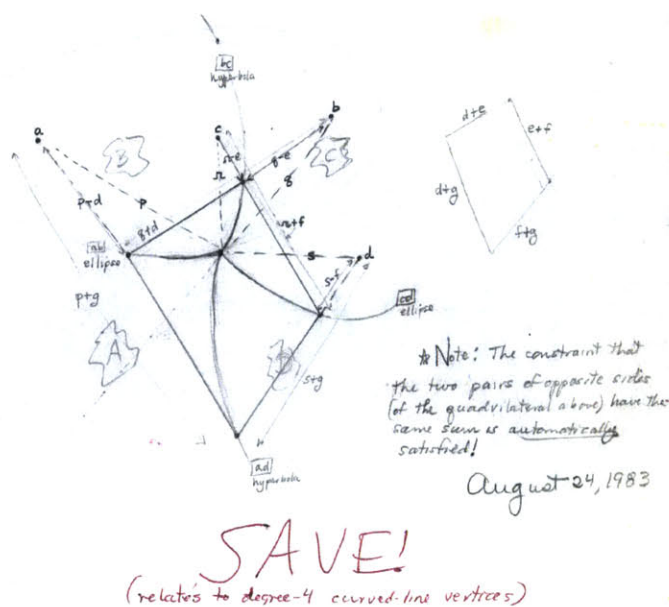 bc
hyperbola
a
b
c
B
C
r-e
q-e
p-d
p
r
q
q+d
r+f
s
d
s-f
ab
ellipse
cd
ellipse
p+g
A
D
s+g
ad
hyperbola
d+e
e+f
d+g
f+g
* Note: The constraint that
the two pairs of opposite sides
(of the quadrilateral above) have the
same sum is automatically
satisfied!
August 24, 1983
SAVE!
(relates to degree-4 curved-line vertices)